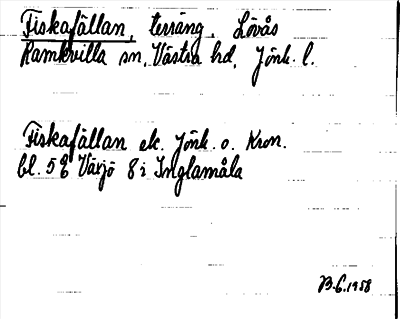 Fiskafällan, terräng, Lövås
Ramkvilla sn, Västra hd, Jönk. l.
Fiskafällan ek. Jönk. o. Kron.
bl. 5E Växjö 8i Inglamåla
B.G. 1958